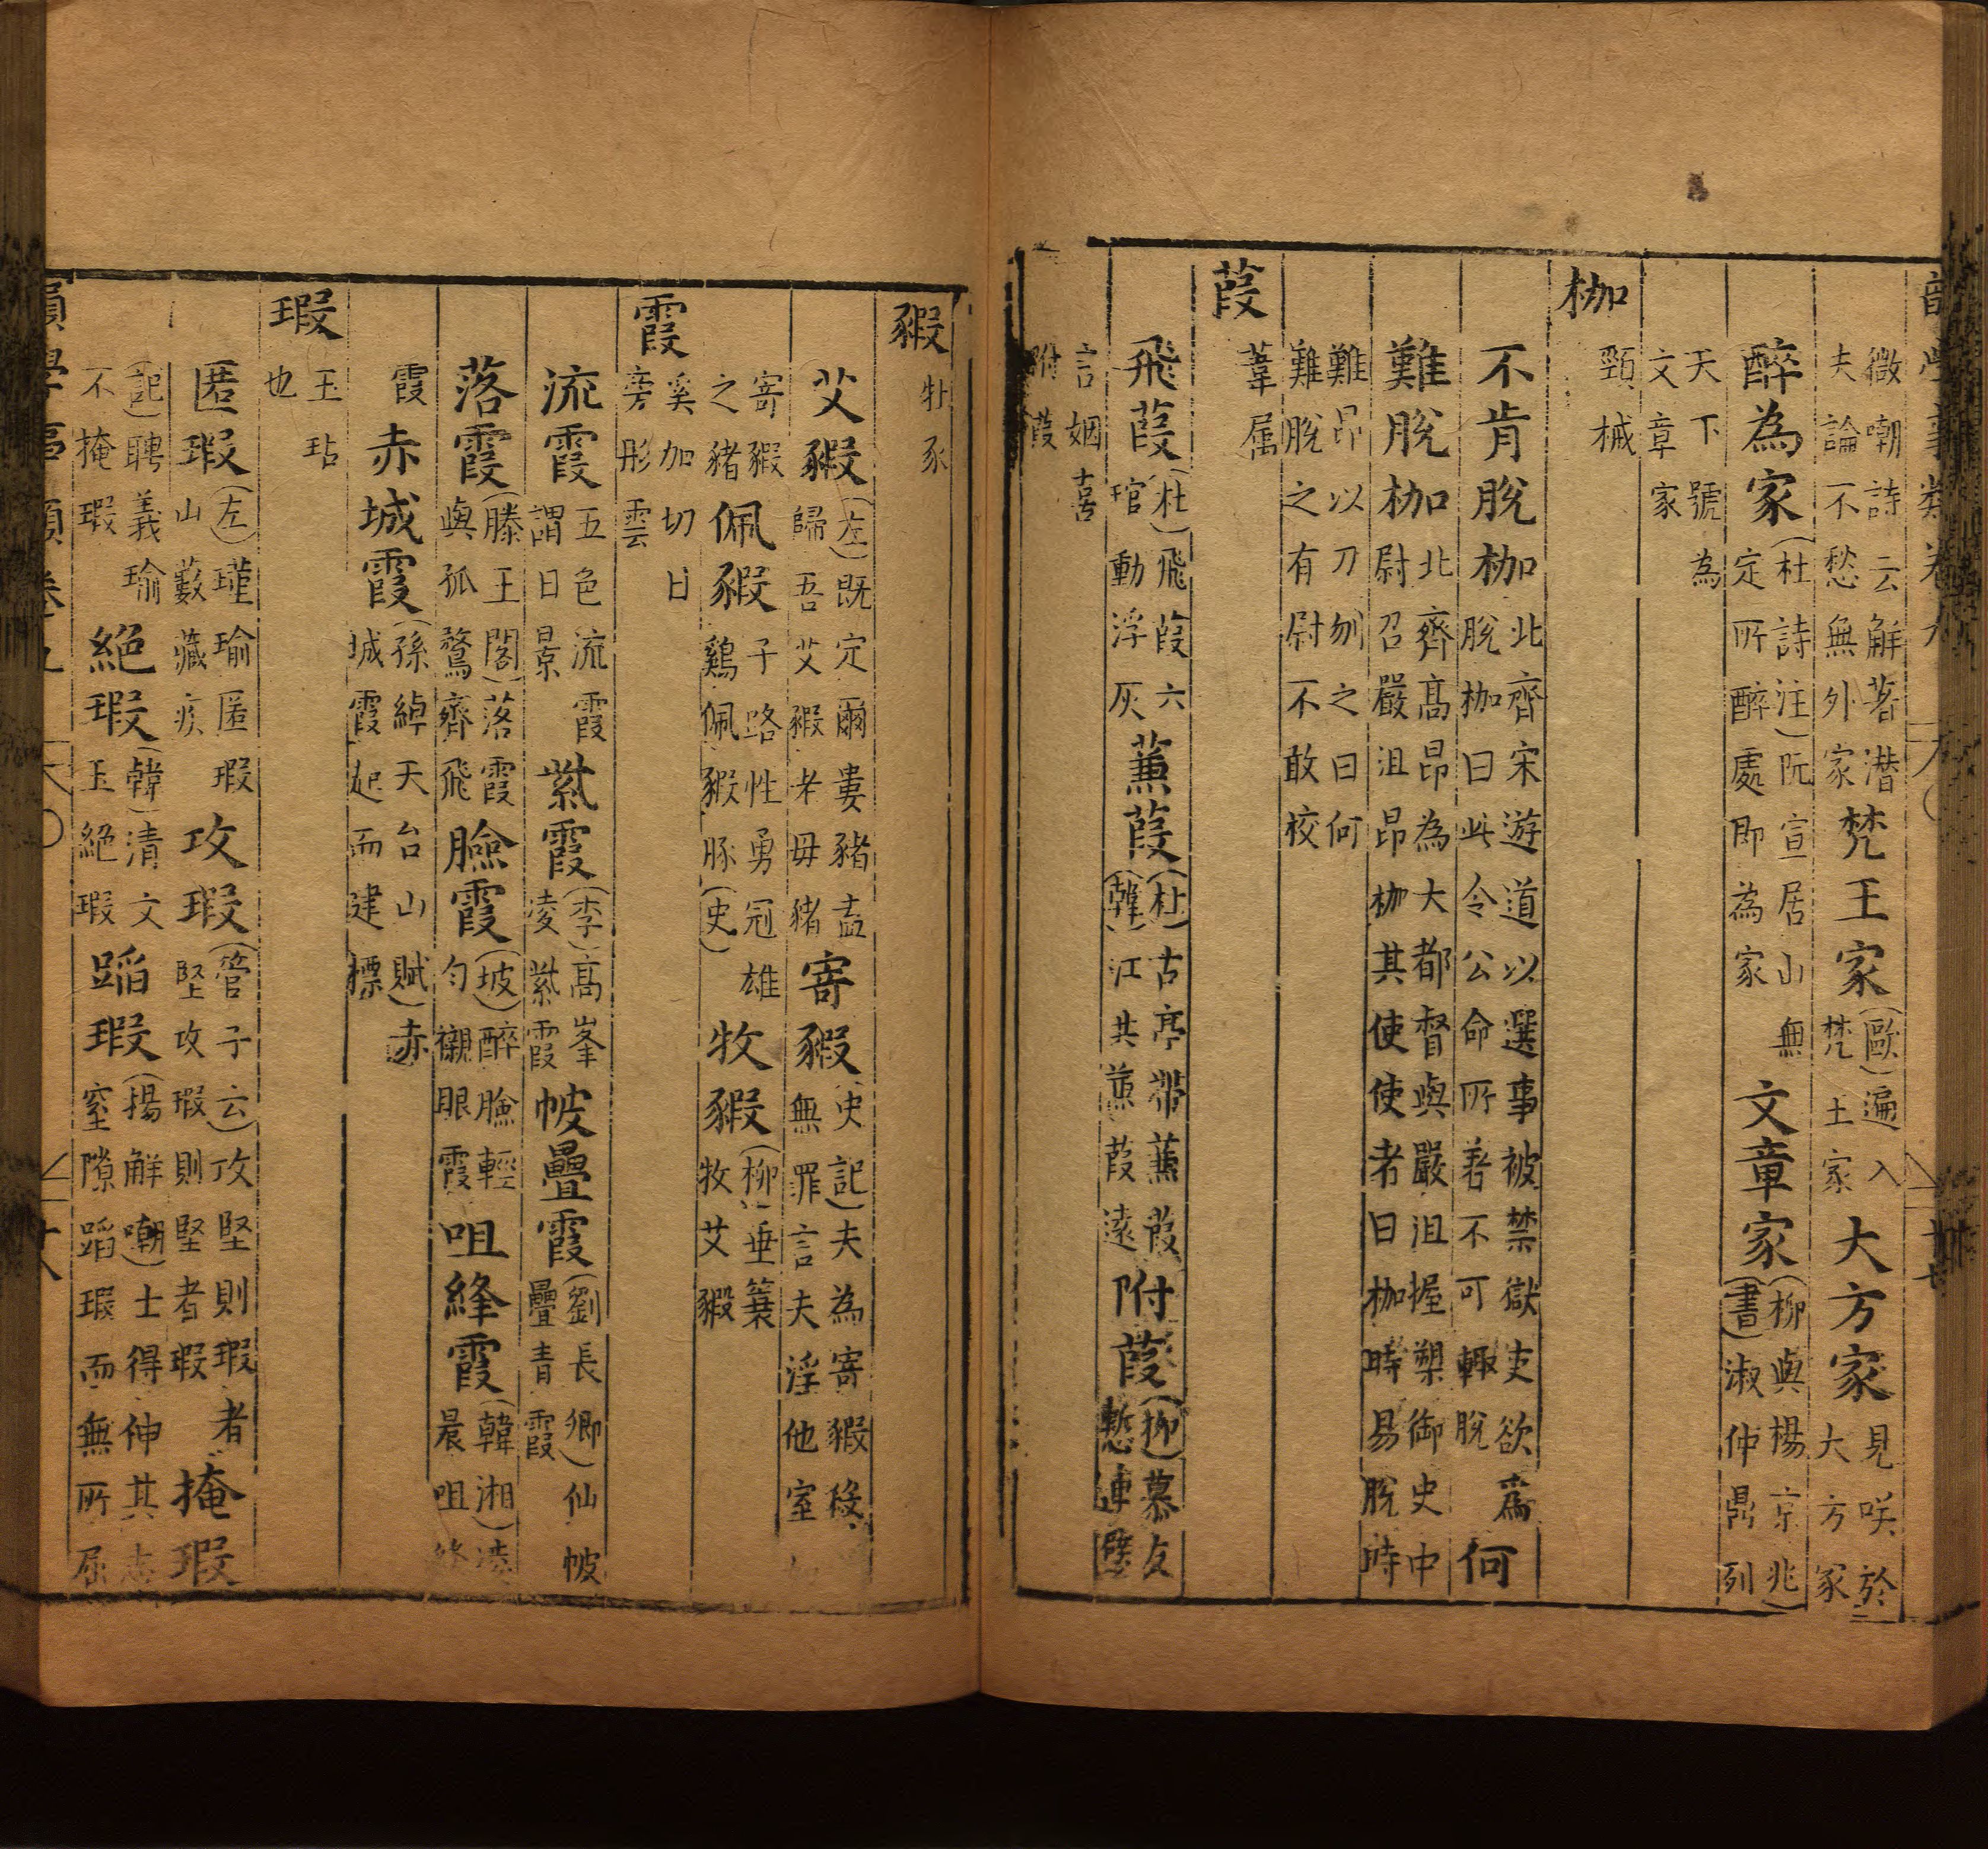 微嘲詩云解著潛夫論不愁無外家梵王家(歐)遍入梵王家大方家見咲於大方家
醉為家(杜詩注)阮宣居山無定所醉處即為家文章家(柳與楊京兆書)淑仲鼎列
天下號為文章家
枷頸械
不肯脫枷北齊宋遊道以選事被禁獄吏欲爲脫枷曰此令公命所著不可輙脫何
難脫枷北齊髙昂為大都督與嚴沮握槊御史中尉召嚴沮昂枷其使使者曰枷時易脫時
難昂以刀刎之曰何難脫之有尉不敢校
葭葦属
飛葭(杜)飛葭六琯動浮灰蒹葭(杜)古亭帶蒹葭(韓)江共蒹葭遠附葭(柳)慕友慙連璧
言姻喜附葭
豭牡豕
艾豭(左)既定爾婁豬盍歸吾艾豭老母豬寄豭史記)夫為寄豭殺無罪言夫淫他室
寄豭之豬佩豭子路性勇冠雄鷄佩豭豚(史)牧豭(柳)垂簑牧艾豭
霞奚加切日旁彤雲
流霞五色流霞謂日景紫霞(李)高峯凌紫霞帔疊霞(劉長卿)仙帔疊青霞
落霞(滕王閣)落霞與孤鶩齊飛臉霞(坡)醉臉輕勻襯眼霞咀絳霞(韓湘)凌晨咀絳
霞赤城霞(孫綽天台山賦)赤城霞起而建標
瑕玉玷也
匿瑕(左)瑾瑜匿瑕山藪藏疾攻瑕(管子云)攻堅則瑕者堅攻瑕則堅者瑕掩瑕
(記)聘義瑜不掩瑕絕瑕(韓)清文玉絕瑕蹈瑕(揚解嘲)士得伸其志窒隙蹈瑕而無所屈